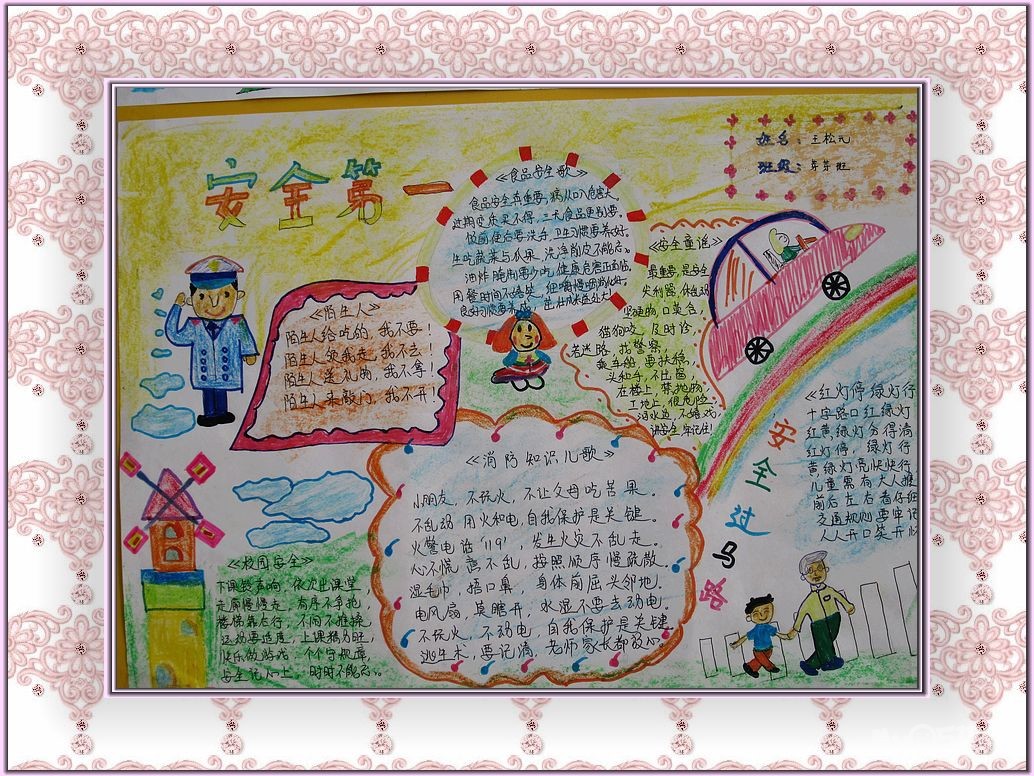 安全第一
姓名：王松元
班级：芽芽班
《食品安全歌》
食品安全真重要，病从口入危害大。
过期变质买不得，三无食品更别要。
饭前便后要洗手，卫生习惯要养好。
生吃蔬菜与瓜果，洗净削皮不能忘。
油炸腌制要少吃，健康危害正面临。
用餐时间不嬉笑，细嚼慢咽消化好。
《陌生人》
陌生人给吃的，我不要！
陌生人领我走，我不去！
陌生人送礼物，我不拿！
陌生人来敲门，我不开！
《安全童谣》
最重要，是安全
尖利器，休乱玩
坚硬物，口莫含，
猫狗咬，及时诊，
若迷路，找警察，
乘车船，要扶稳，
头和手，不出窗，
在楼上，禁抛物
工地上，很危险
河水边，不嬉戏，
讲安全，牢记住！
《消防知识儿歌》
小朋友，不玩火，不让父母吃苦果。
不乱玩 用火和电，自我保护是关键。
火警电话"119"，发生火灾不乱走。
心不慌 意不乱，按照顺序慢疏散。
湿毛巾 捂口鼻， 身体前屈头邻地，
电风扇，莫瞎开，水湿不要去动电。
不玩火，不动电，自我保护是关键
逃生术，要记清，老师家长都放心。
《校园安全》
下课铃声响，依次出课堂
走廊慢慢走，有序不争抢，
楼梯靠右行，不闹不推搡，
快乐做游戏，个个守规章，
安全记心上，时时不能忘。
安全过马路
《红灯停 绿灯行
十字路口 红绿灯
红黄绿灯 分得清
红灯停， 绿灯行
黄绿灯亮快快行
儿童需有大人
前后左右看仔细
交通规则要牢记
人人开口笑开